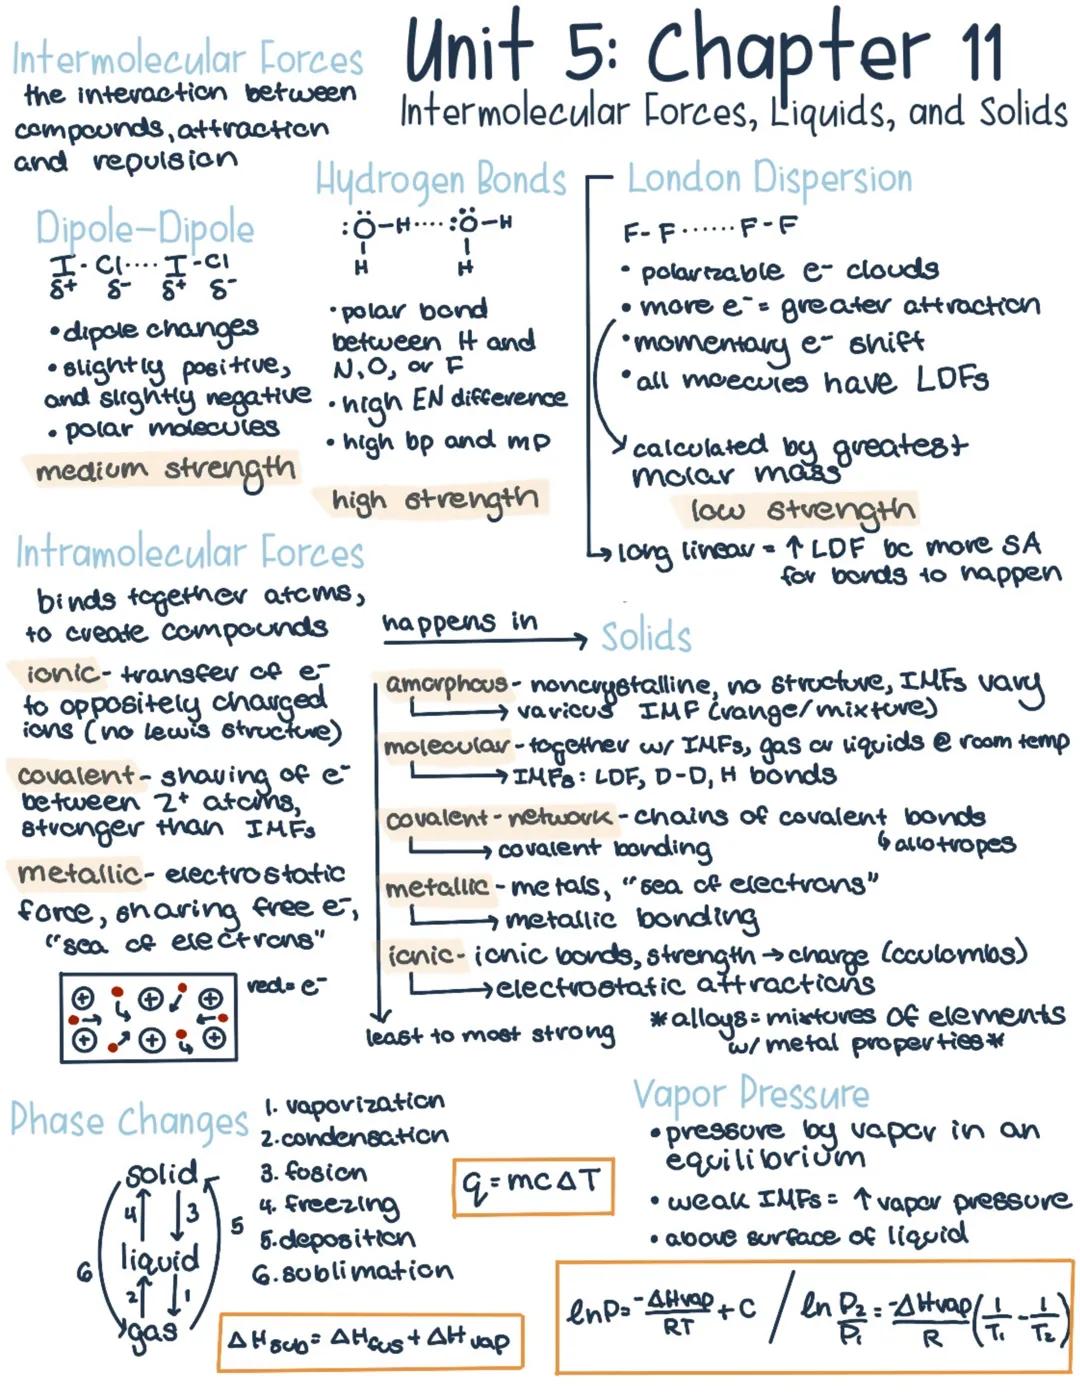 Unit 5: Chapter 11
Intermolecular Forces, Liquids, and Solids
Intermolecular Forces
the interaction between
compounds, attraction
and repulsion
Dipole-Dipole
I - Cl ···· I - Cl
δ+ δ- δ+ δ-
• dipole changes
• slightly positive,
and slightly negative
• polar molecules
medium strength
Hydrogen Bonds
:Ö-H····:Ö-H
H H
• polar bond
between H and
N, O, or F
• high EN difference
• high bp and mp
high strength
London Dispersion
F-F······F-F
• polarizable e- clouds
• more e- = greater attraction
• momentary e- shift
• all moecules have LDFs
calculated by greatest
molar mass
low strength
long linear = ↑ LDF bc more SA
for bonds to happen
Intramolecular Forces
binds together atoms,
to create compounds
ionic - transfer of e-
to oppositely charged
ions (no lewis structure)
covalent - sharing of e-
between 2+ atoms,
stronger than IMFs
metallic - electrostatic
force, sharing free e-,
"sea of electrons"
red = e-
+ + +
+ + +
happens in → Solids
amorphous - noncrystalline, no structure, IMFs vary
→ various IMF (range/mixture)
molecular - together w/ IMFs, gas or liquids @ room temp
→ IMFs: LDF, D-D, H bonds
covalent-network - chains of covalent bonds
→ covalent bonding ↳ allotropes
metallic - metals, "sea of electrons"
→ metallic bonding
ionic - ionic bonds, strength → charge (coulombs)
→ electrostatic attractions
least to most strong
*alloys = mixtures of elements
w/ metal properties*
Phase Changes
solid
4 3
liquid
2 1
gas
5
6
1. vaporization
2. condensation
3. fusion
4. freezing
5. deposition
6. sublimation
q = mcΔT
ΔHsub = ΔHfus + ΔHvap
Vapor Pressure
• pressure by vapor in an
equilibrium
• weak IMFs = ↑ vapor pressure
• above surface of liquid
lnP = -ΔHvap/RT + C / ln P2/P1 = -ΔHvap/R (1/T1 - 1/T2)